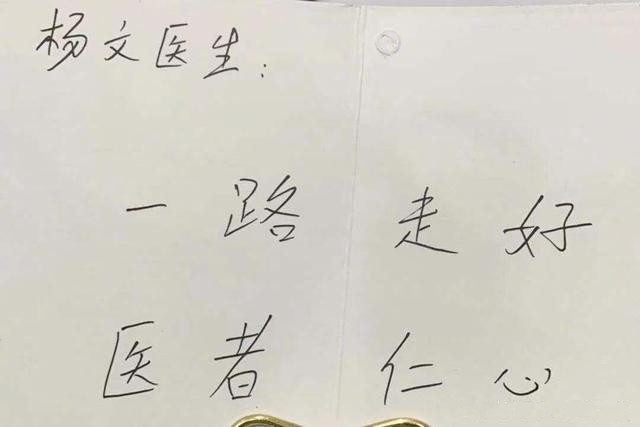 杨文医生:
一路走好
医者仁心